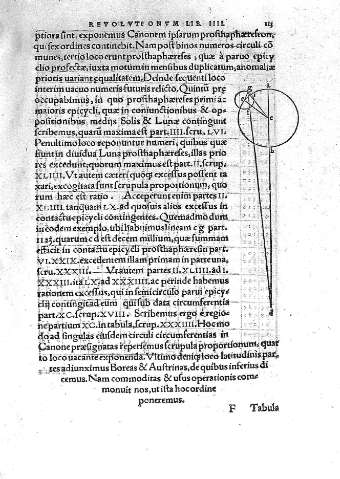 REVOLVTIONVM LIB. IIII. 113
ptiora sint. exponemus Canonem ipsarum prosthaphæreseon,
qui sex ordines continebit. Nam post binos numeros circuli cõ
munes, tertio loco erunt prosthaphæreses, quæ à paruo epicy
clio profectæ, iuxta motum in mensibus duplicatum, anomaliæ
prioris variant æqualitatem. Deinde sequenti loco
interim uacuo numeris futuris relicto. Quintũ præ
occupabimus, in quo prosthaphæreses primi ac
maioris epicycli, quæ in coniunctionibus & op-
positionibus medijs Solis & Lunæ contingunt
scribemus, quarũ maxima est part. IIII. scru. LVI.
Penultimo loco reponuntur numeri, quibus quæ
fiunt in diuidua Luna prosthaphæreses, illas prio
res excedunt, quorum maximus est part. II. scrup.
XLIIII. Vt autem cæteri quoque excessus possent ta
xari, excogitata sunt scrupula proportionum, quo
rum hæc est ratio. Acceperunt enim partes II.
XLIIII. tanquam LX. ad quosuis alios excessus in
contactu epicycli contingentes. Quemadmodum
in eodem exemplo, ubi habuimus lineam c g part.
quarum c d est decem milium, quæ summam
efficit in contactu epicycli prosthaphæresim part.
VI. XXIX. excedentem illam primam in parte una,
scru. XXXIII. Vt autem partes II. XLIIII. ad I.
XXXIII. ita LX. ad XXXIIII. ac perinde habemus
rationem excessus, qui in semicirculo parui epicy
clij contingit ad eum qui sub data circumferentia
part. XC. scrup. XVIII. Scribemus ergo è regio-
ne partium XC. in tabula, scrup. XXXIIII. Hoc mo
do ad singulas eiusdem circuli circumferentias in
Canone præsignatas reperiemus scrupula proportionum, quar
to loco uacante exponenda. Vltimo denique loco latitudinis par
tes adiunximus Boreas & Austrinas, de quibus inferius di
cemus. Nam commoditas & usus operationis com
monuit nos, ut ista hoc ordine
poneremus.
F Tabula